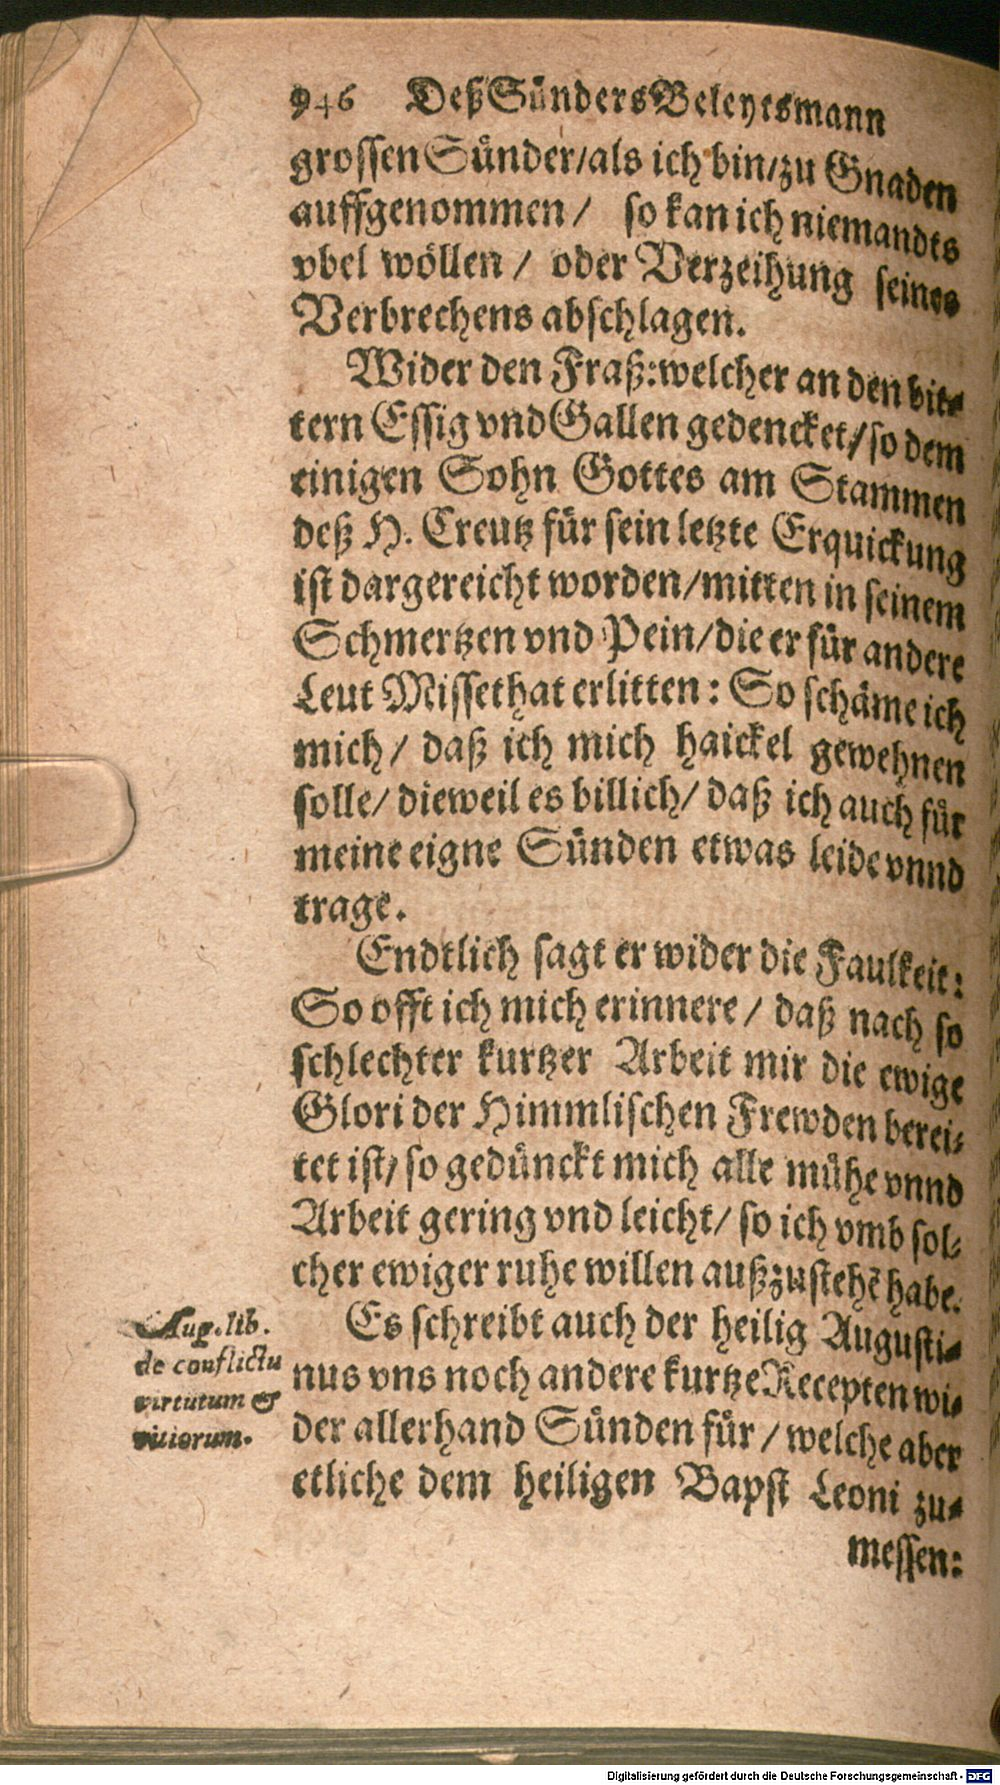 946 Deß Sünders Beleytsmann
grossen Sünder/als ich bin/zu Gnaden
auffgenommen/ so kan ich niemandts
vbel wöllen/ oder Verzeihung seines
Verbrechens abschlagen.
Wider den Fraß:welcher an den bit-
tern Essig vnd Gallen gedencket/so dem
einigen Sohn Gottes am Stammen
deß H. Creutz für sein letzte Erquickung
ist dargereicht worden/mitten in seinem
Schmertzen vnd Pein/die er für andere
Leut Missethat erlitten: So schäme ich
mich/ daß ich mich haickel gewehnen
solle/ dieweil es billich/ daß ich auch für
meine eigne Sünden etwas leide vnnd
trage.
Endtlich sagt er wider die Faulkeit:
So offt ich mich erinnere/ daß nach so
schlechter kurtzer Arbeit mir die ewige
Glori der Himmlischen Frewden berei-
tet ist/ so gedünckt mich alle mühe vnnd
Arbeit gering vnd leicht/ so ich vmb sol-
cher ewiger ruhe willen außzustehẽ habe.
Aug. lib.
de conflictu
virtutum &
vitiorum.
Es schreibt auch der heilig Augusti-
nus vns noch andere kurtze Recepten wi-
der allerhand Sünden für/ welche aber
etliche dem heiligen Bapst Leoni zu-
messen:
Digitalisierung gefördert durch die Deutsche Forschungsgemeinschaft - DFG